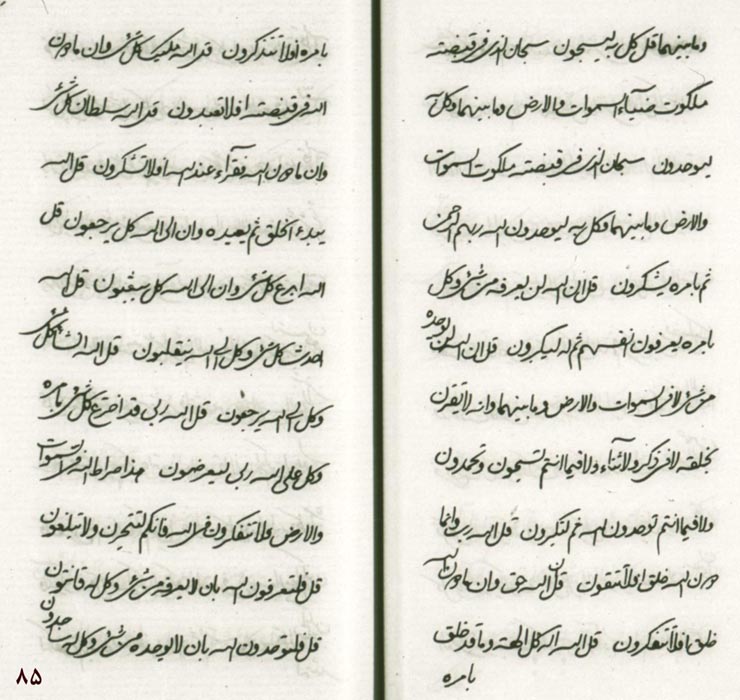 وما بينهما قل كل به ليسبحون سبحان الذي في قبضته
ملكوت ضياء السموات والارض وما بينهما وكل له
ليوحدون سبحان الذي في قبضته ملكوت السموات
والارض وما بينهما وكل به ليوحدون الله ربهم الرحمن
ثم بامره يشكرون قل ان الله لن يعرفه من شئ وكل
بامره يعرفون انفسهم ثم له ليكبرون قل ان الله لن يوحده
من شئ لا في السموات والارض وما بينهما وانه لا يقرن
بخلقه لا في ذكر ولا ثناء ولا فيما انتم تسبحون وتحمدون
ولا فيما انتم توحدون الله ثم لتكبرون قل الله رب وانما
دون الله خلق افلا تتقون قل ان الله حق وان ما دون الله
خلق افلا تتفكرون قل الله اله كل الهة وما قد خلق
بامره
بامره افلا تتذكرون قد الله مليك كل شئ وان ما دون
الله في قبضته افلا تعبدون قد الله سلطان كل شئ
وان ما دون الله فقراء عند الله افلا تشكرون قل الله
يبدء الخلق ثم يعيده وان الى الله كل يرجعون قل
الله ابدع كل شئ وان الى الله كل يبعثون قل الله
احدث كل شئ وكل الى الله ينيقلبون قل الله انشاء كل شئ
وكل الى الله يرجعون قل الله ربي قد اخترع كل شئ بامره
وكل على الله ربي ليعرضون هذا صراط الله في السموات
والارض ولا تتفكرون في الله فانكم لتتحيرن ولا تبلغون
قل فلتعرفون الله بان لا يعرفه من شئ وكل له قانتون
قل فلتوحدون الله بان لا يوحده من شئ وكل له ساجدون
۸۵